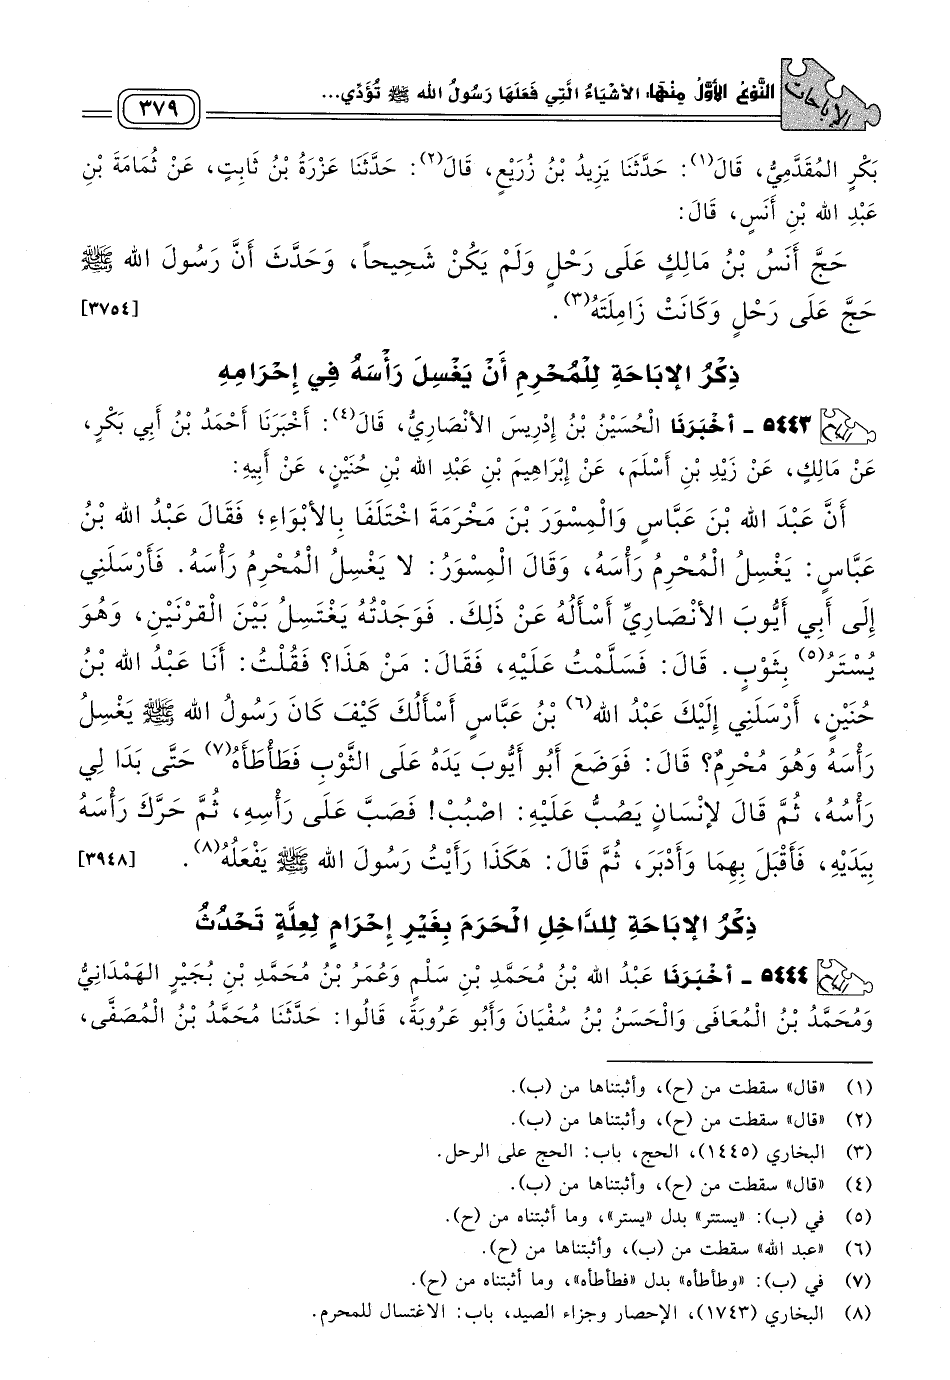 الإباحات
النَّوْعُ الأَوَّلُ مِنْهَا: الأَشْيَاءُ الَّتِي فَعَلَهَا رَسُولُ الله ﷺ تُؤَدِّي...
٣٧٩
بَكْرٍ المُقَدَّمِيُّ، قَالَ(١): حَدَّثَنَا يَزِيدُ بْنُ زُرَيْعٍ، قَالَ(٢): حَدَّثَنَا عَزْرَةُ بْنُ ثَابِتٍ، عَنْ ثُمَامَةَ بْنِ
عَبْدِ الله بْنِ أَنَسٍ، قَالَ:
حَجَّ أَنَسُ بْنُ مَالِكٍ عَلَى رَحْلٍ وَلَمْ يَكُنْ شَحِيحاً، وَحَدَّثَ أَنَّ رَسُولَ الله ﷺ
حَجَّ عَلَى رَحْلٍ وَكَانَتْ زَامِلَتَهُ(٣). [٣٧٥٤]
ذِكْرُ الإِبَاحَةِ لِلْمُحْرِمِ أَنْ يَغْسِلَ رَأْسَهُ فِي إِحْرَامِهِ
٥٤٤٣ ـ أَخْبَرَنَا الْحُسَيْنُ بْنُ إِدْرِيسَ الأَنْصَارِيُّ، قَالَ(٤): أَخْبَرَنَا أَحْمَدُ بْنُ أَبِي بَكْرٍ،
عَنْ مَالِكٍ، عَنْ زَيْدِ بْنِ أَسْلَمَ، عَنْ إِبْرَاهِيمَ بْنِ عَبْدِ الله بْنِ حُنَيْنٍ، عَنْ أَبِيهِ:
أَنَّ عَبْدَ الله بْنَ عَبَّاسٍ وَالْمِسْوَرَ بْنَ مَخْرَمَةَ اخْتَلَفَا بِالأَبْوَاءِ؛ فَقَالَ عَبْدُ الله بْنُ
عَبَّاسٍ: يَغْسِلُ الْمُحْرِمُ رَأْسَهُ، وَقَالَ الْمِسْوَرُ: لا يَغْسِلُ الْمُحْرِمُ رَأْسَهُ. فَأَرْسَلَنِي
إِلَى أَبِي أَيُّوبَ الأَنْصَارِيِّ أَسْأَلُهُ عَنْ ذَلِكَ. فَوَجَدْتُهُ يَغْتَسِلُ بَيْنَ الْقَرْنَيْنِ، وَهُوَ
يُسْتَرُ(٥) بِثَوْبٍ. قَالَ: فَسَلَّمْتُ عَلَيْهِ، فَقَالَ: مَنْ هَذَا؟ فَقُلْتُ: أَنَا عَبْدُ الله بْنُ
حُنَيْنٍ، أَرْسَلَنِي إِلَيْكَ عَبْدُ الله(٦) بْنُ عَبَّاسٍ أَسْأَلُكَ كَيْفَ كَانَ رَسُولُ الله ﷺ يَغْسِلُ
رَأْسَهُ وَهُوَ مُحْرِمٌ؟ قَالَ: فَوَضَعَ أَبُو أَيُّوبَ يَدَهُ عَلَى الثَّوْبِ فَطَأْطَأَهُ(٧) حَتَّى بَدَا لِي
رَأْسُهُ، ثُمَّ قَالَ لإِنْسَانٍ يَصُبُّ عَلَيْهِ: اصْبُبْ! فَصَبَّ عَلَى رَأْسِهِ، ثُمَّ حَرَّكَ رَأْسَهُ
بِيَدَيْهِ، فَأَقْبَلَ بِهِمَا وَأَدْبَرَ، ثُمَّ قَالَ: هَكَذَا رَأَيْتُ رَسُولَ الله ﷺ يَفْعَلُهُ(٨). [٣٩٤٨]
ذِكْرُ الإِبَاحَةِ لِلدَّاخِلِ الْحَرَمَ بِغَيْرِ إِحْرَامٍ لِعِلَّةٍ تَحْدُثُ
٥٤٤٤ ـ أَخْبَرَنَا عَبْدُ الله بْنُ مُحَمَّدِ بْنِ سَلْمٍ وَعُمَرُ بْنُ مُحَمَّدِ بْنِ بُجَيْرٍ الهَمْدَانِيُّ
وَمُحَمَّدُ بْنُ الْمُعَافَى وَالْحَسَنُ بْنُ سُفْيَانَ وَأَبُو عَرُوبَةَ، قَالُوا: حَدَّثَنَا مُحَمَّدُ بْنُ الْمُصَفَّى،
(١) «قال» سقطت من (ح)، وأثبتناها من (ب).
(٢) «قال» سقطت من (ح)، وأثبتناها من (ب).
(٣) البخاري (١٤٤٥)، الحج، باب: الحج على الرحل.
(٤) «قال» سقطت من (ح)، وأثبتناها من (ب).
(٥) في (ب): «يستتر» بدل «يستر»، وما أثبتناه من (ح).
(٦) «عبد الله» سقطت من (ب)، وأثبتناها من (ح).
(٧) في (ب): «وطأطأه» بدل «فطأطأه»، وما أثبتناه من (ح).
(٨) البخاري (١٧٤٣)، الإحصار وجزاء الصيد، باب: الاغتسال للمحرم.